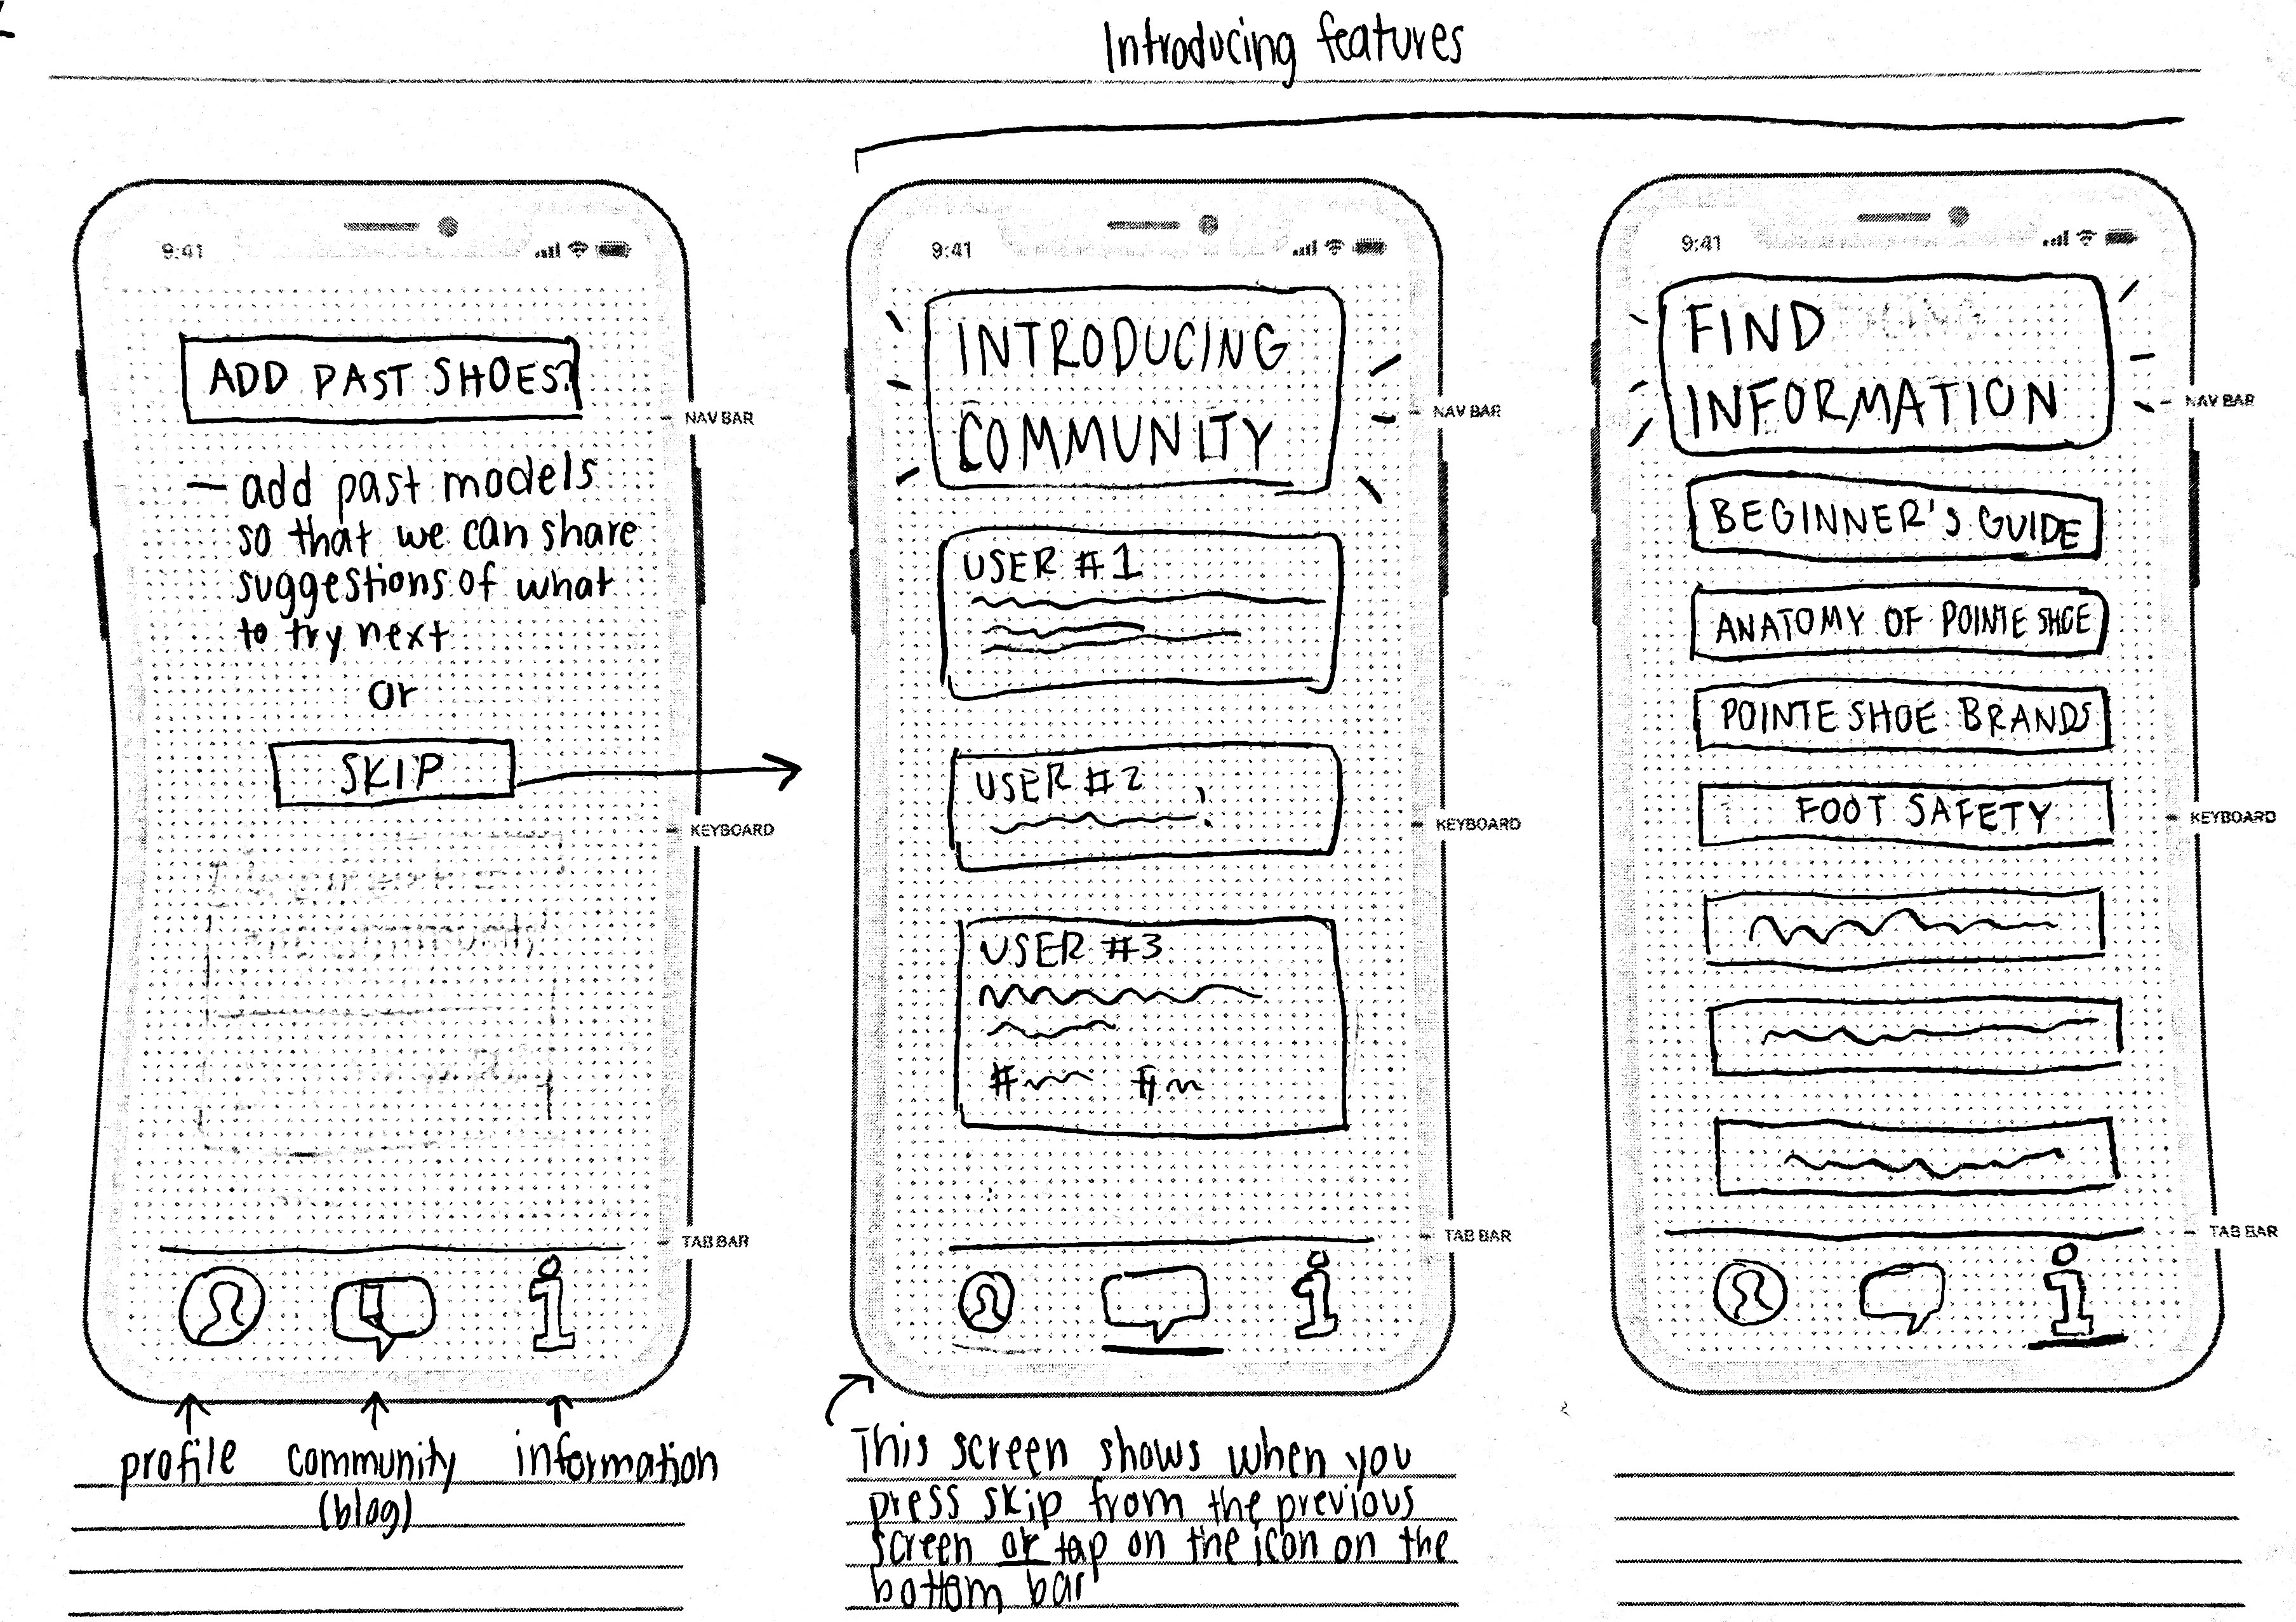 Introducing features
9:41
ADD PAST SHOES?
NAV BAR
— add past models
so that we can share
suggestions of what
to try next
or
SKIP
KEYBOARD
TAB BAR
profile community information
(blog)
9:41
INTRODUCING
COMMUNITY
NAV BAR
USER #1
USER #2
KEYBOARD
USER #3
TAB BAR
This screen shows when you
press skip from the previous
screen or tap on the icon on the
bottom bar
9:41
FIND
INFORMATION
NAV BAR
BEGINNER'S GUIDE
ANATOMY OF POINTE SHOE
POINTE SHOE BRANDS
FOOT SAFETY
KEYBOARD
TAB BAR